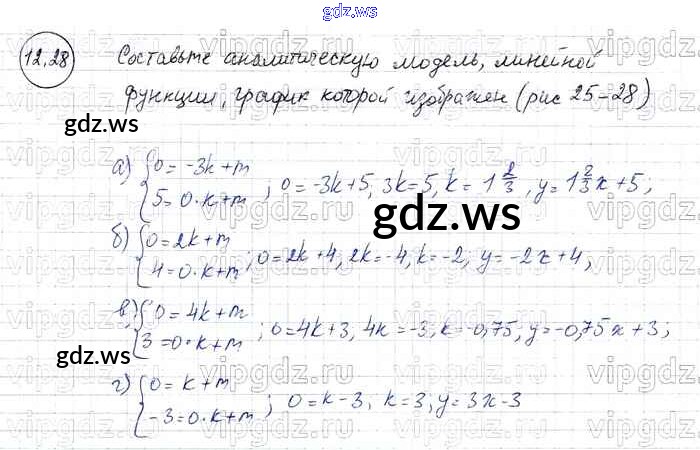 gdz.ws
12.28 Составьте аналитическую модель, линейной
функции, график которой изображен (рис 25-28)
gdz.ws
а) { 0 = -3k+m
5 = 0·k+m ; 0 = -3k+5, 3k=5, k = 1 2/3, y = 1 2/3 x + 5;
gdz.ws
б) { 0 = 2k+m
4 = 0·k+m ; 0 = 2k+4, 2k=-4, k=-2; y = -2x+4;
в) { 0 = 4k+m
3 = 0·k+m ; 0=4k+3, 4k=-3, k=-0,75, y=-0,75x+3;
gdz.ws
г) { 0 = k+m
-3=0·k+m ; 0 = k-3; k=3; y=3x-3
vipgdz